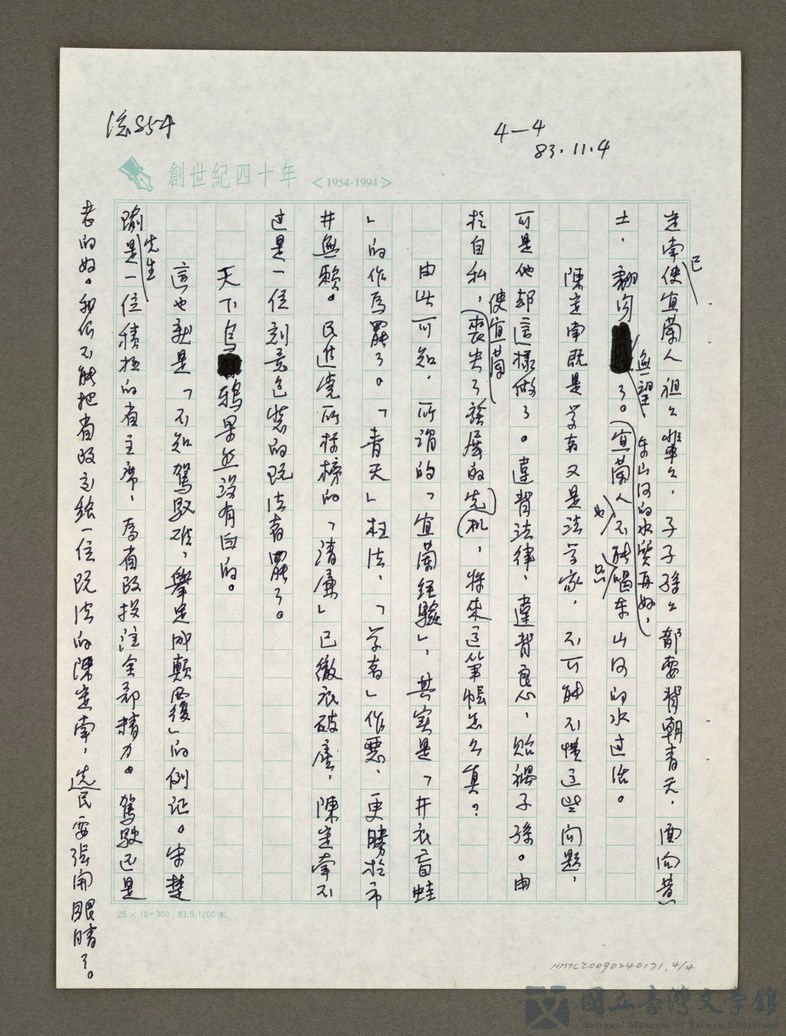 流854
4—4
83.11.4
創世紀四十年 <1954-1994>
定南使宜蘭人祖祖輩輩，子子孫孫都要背朝青天，面向黃
已
土，翻身無望了。東山河的水質再好，宜蘭人也不能只喝東山河的水過活。
陳定南既是學者又是法學家，不可能不懂這些問題，
可是他卻這樣做了。違背法律，違背良心，貽禍子孫。由
於自私，使宜蘭喪失了發展的先机，將來這筆帳怎么算？
由此可知，所謂的「宜蘭經驗」，其實是「井底盲蛙
」的作為罷了。「青天」枉法，「學者」作惡，更勝於市
井無賴。民進党所标榜的「清廉」已徹底破產，陳定南不
过是一位刻意包裝的玩法者罷了。
天下烏鴉果然没有白的。
這也就是「不知駕馭破，舉足成顛覆」的例证。宋楚
瑜先生是一位積極的省主席，為省政投注全部精力。駕駛还是
老的好。我们不能把省政交給一位玩法的陳定南，选民要張開眼睛了。
25 × 12=300 83.9.1200本
NMTL20090240171.4/4
國立臺灣文學館
National Museum of Taiwan Literature